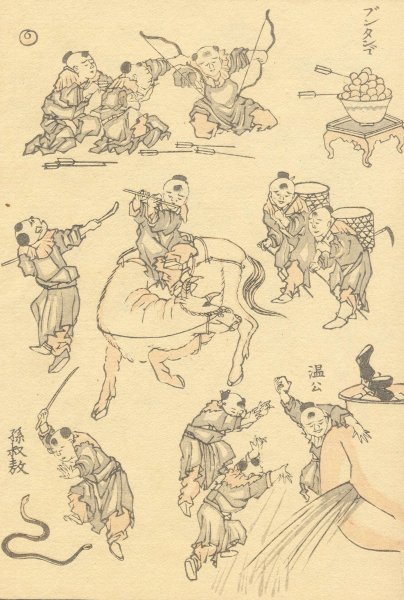 ブンタン
温公
孫叔敖